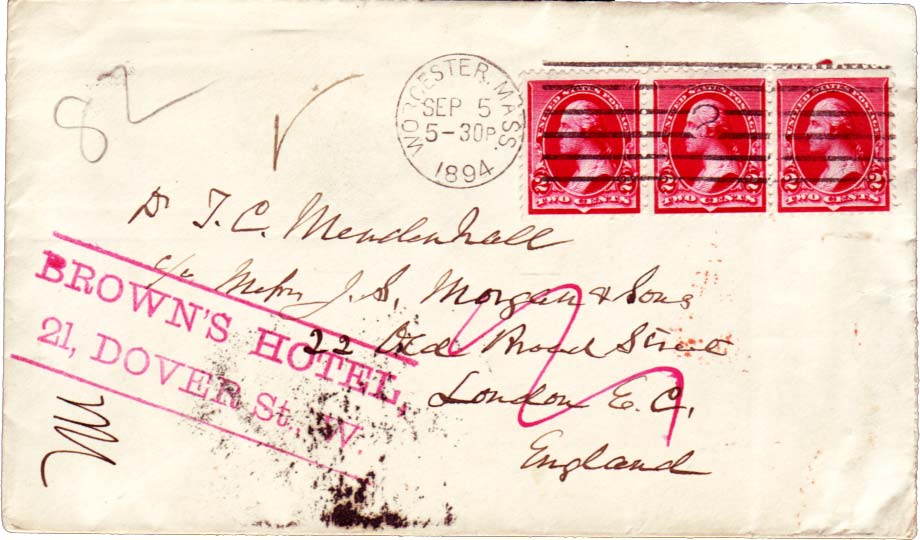 82
WORCESTER, MASS
SEP 5
5-30P.
1894
UNITED STATES POSTAGE
2 2
TWO CENTS
UNITED STATES POSTAGE
2 2
TWO CENTS
UNITED STATES POSTAGE
2 2
TWO CENTS
Dr T. C. Mendenhall
c/o Messrs J. S. Morgan & Sons
22 Old Broad Street
London E. C.
England
BROWN'S HOTEL,
21, DOVER St. W.